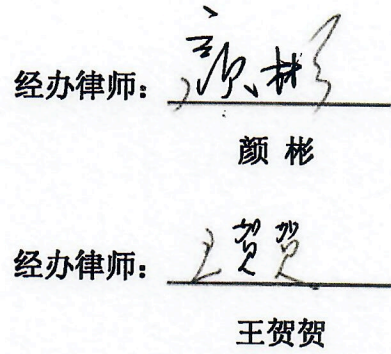 经办律师：颜彬
颜 彬
经办律师：王贺贺
王贺贺